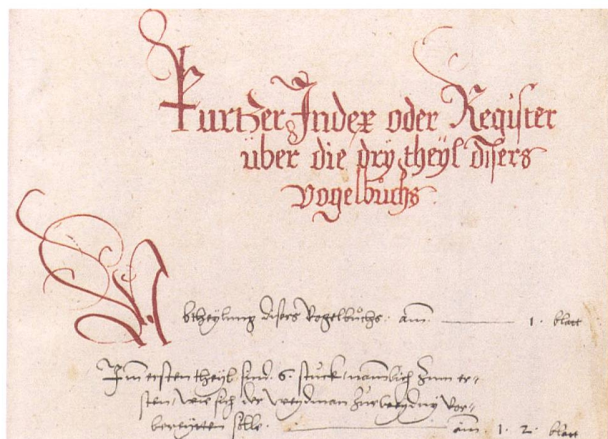 Kurtzer Index oder Register
über die dry theyl disers
vogelbůchs.
Abtheylung disers Vogelbůchs. am 1. blatt
Im ersten theyl sind. 6. stuck, nammlich zum er-
sten, wie sich der weydman zur
sölle. am. 1. 2. blatt